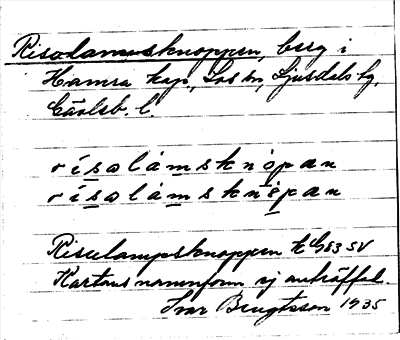 Risolamsknoppen, berg i
Hamra kap., Los sn, Ljusdals tg,
Gävleb. l.
rísolámsknopan
rísolámsknöpan
Risulampsknoppen k G83 SV
Kartans namnform ej anträffad.
Ivar Bengtsson 1935